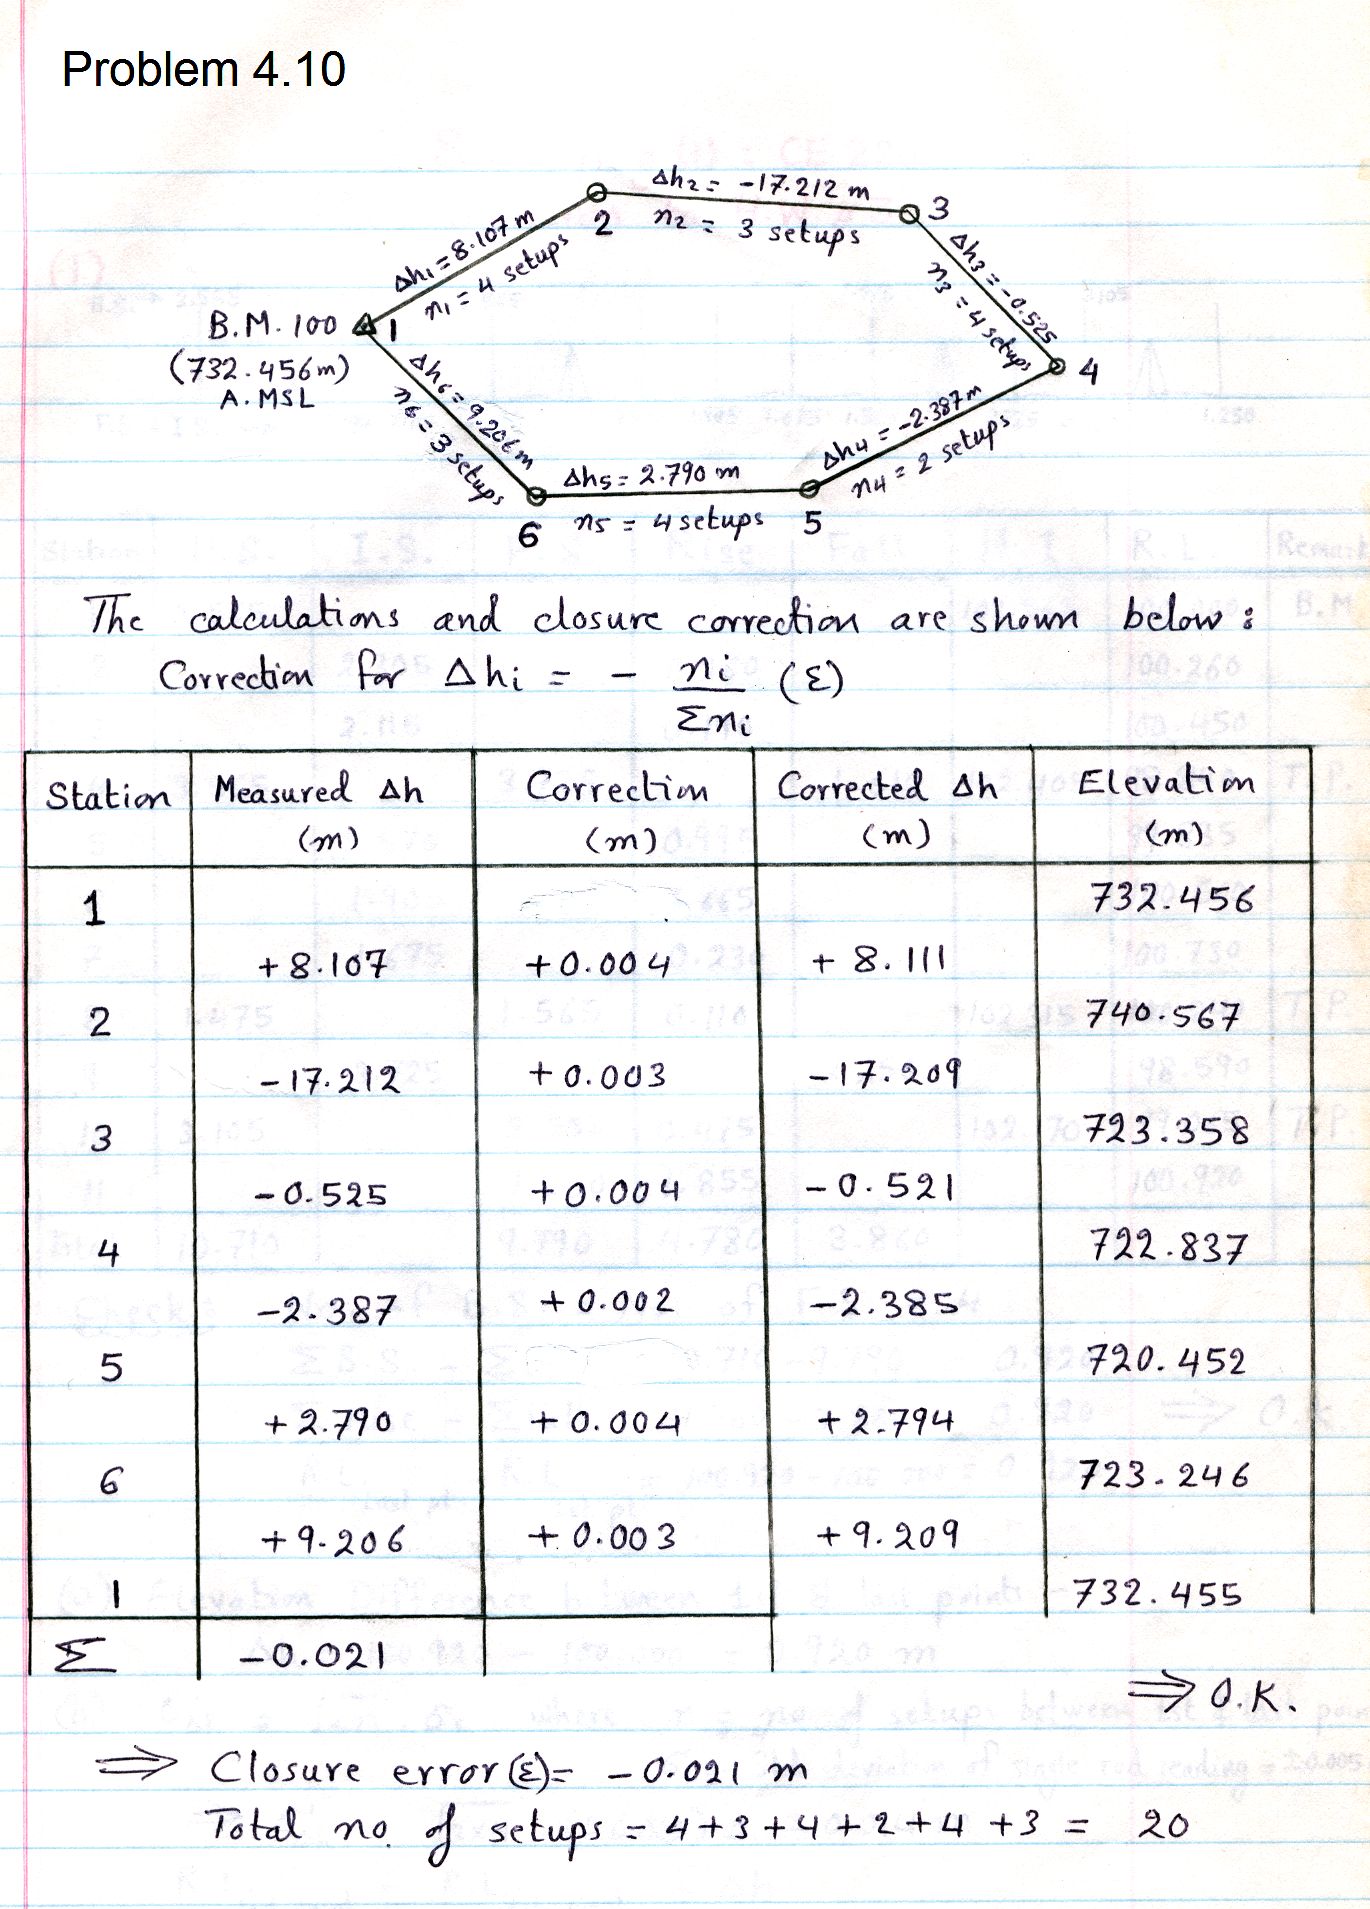 Problem 4.10
Δh₂ = -17.212 m
n₂ = 3 setups
2
3
Δh₁ = 8.107 m
n₁ = 4 setups
Δh₃ = -0.525
n₃ = 4 setups
B.M. 100
1
(732.456m)
A. MSL
4
Δh₆ = 9.206 m
n₆ = 3 setups
Δh₄ = -2.387m
n₄ = 2 setups
Δh₅ = 2.790 m
n₅ = 4 setups
6
5
The calculations and closure correction are shown below :
Correction for Δhi = - ni / Σni (Ɛ)
Station Measured Δh (m) Correction (m) Corrected Δh (m) Elevation (m)
1 732.456
+8.107 +0.004 +8.111
2 740.567
-17.212 +0.003 -17.209
3 723.358
-0.525 +0.004 -0.521
4 722.837
-2.387 +0.002 -2.385
5 720.452
+2.790 +0.004 +2.794
6 723.246
+9.206 +0.003 +9.209
1 732.455
Σ -0.021
⇒ O.K.
⇒ Closure error (Ɛ)= -0.021 m
Total no. of setups = 4+3+4+2+4+3 = 20